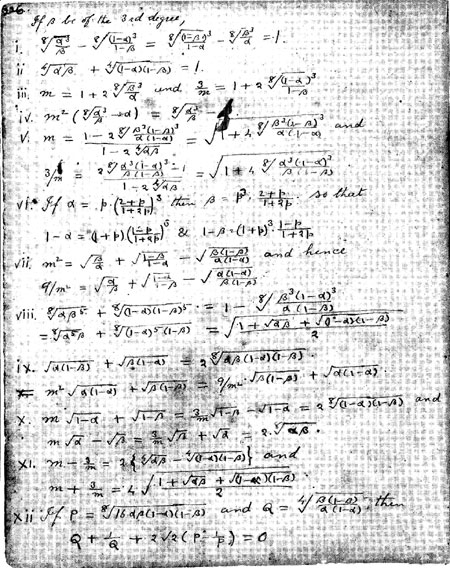 226.
If β be of the 3rd degree,
i. ⁸√(α³/β) − ⁸√((1−α)³/(1−β)) = ⁸√((1−β)³/(1−α)) − ⁸√(β³/α) = 1.
ii ⁴√(αβ) + ⁴√((1−α)(1−β)) = 1.
iii. m = 1 + 2 ⁸√(β³/α) and 3/m = 1 + 2 ⁸√((1−α)³/(1−β))
iv. m² (⁸√(α³/β) − α) = ⁸√(α³/β) −
v. m = (1 − 2 ⁸√(β³(1−β)³/(α(1−α))))/(1 − 2 ⁴√(αβ)) = √(1 + 4 ⁸√(β³(1−β)³/(α(1−α)))) and
3/m = (2 ⁸√(α³(1−α)³/(β(1−β))) − 1)/(1 − 2 ⁴√(αβ)) = √(1 + 4 ⁸√(α³(1−α)³/(β(1−β))))
vi. If α = p·((2+p)/(1+2p))³ then β = p³·(2+p)/(1+2p) so that
1−α = (1+p)((1−p)/(1+2p))³ & 1−β = (1+p)³·(1−p)/(1+2p)
vii. m² = √(β/α) + √((1−β)/(1−α)) − √(β(1−β)/(α(1−α))) and hence
9/m² = √(α/β) + √((1−α)/(1−β)) − √(α(1−α)/(β(1−β))).
viii. ⁸√(αβ⁵) + ⁸√((1−α)(1−β)⁵) = 1 − ⁸√(β³(1−α)³/(α(1−β)))
= ⁸√(α⁵β) + ⁸√((1−α)⁵(1−β)) = √((1 + √(αβ) + √((1−α)(1−β)))/2)
ix. √(α(1−β)) + √(β(1−α)) = 2 ⁸√(αβ(1−α)(1−β)).
m² √(α(1−β)) + √(β(1−β)) = 9/m² · √(β(1−β)) + √(α(1−α)).
x. m√(1−α) + √(1−β) = 3/m √(1−β) − √(1−α) = 2 ⁸√((1−α)(1−β)) and
m√α − √β = 3/m √β + √α = 2.⁸√(αβ).
xi. m − 3/m = 2{⁴√(αβ) − ⁴√((1−α)(1−β))} and
m + 3/m = 4 √((1 + √(αβ) + √((1−α)(1−β)))/2)
xii If P = ⁸√(16αβ(1−α)(1−β)) and Q = ⁴√(β(1−β)/(α(1−α))), then
Q + 1/Q + 2√2 (P − 1/P) = 0